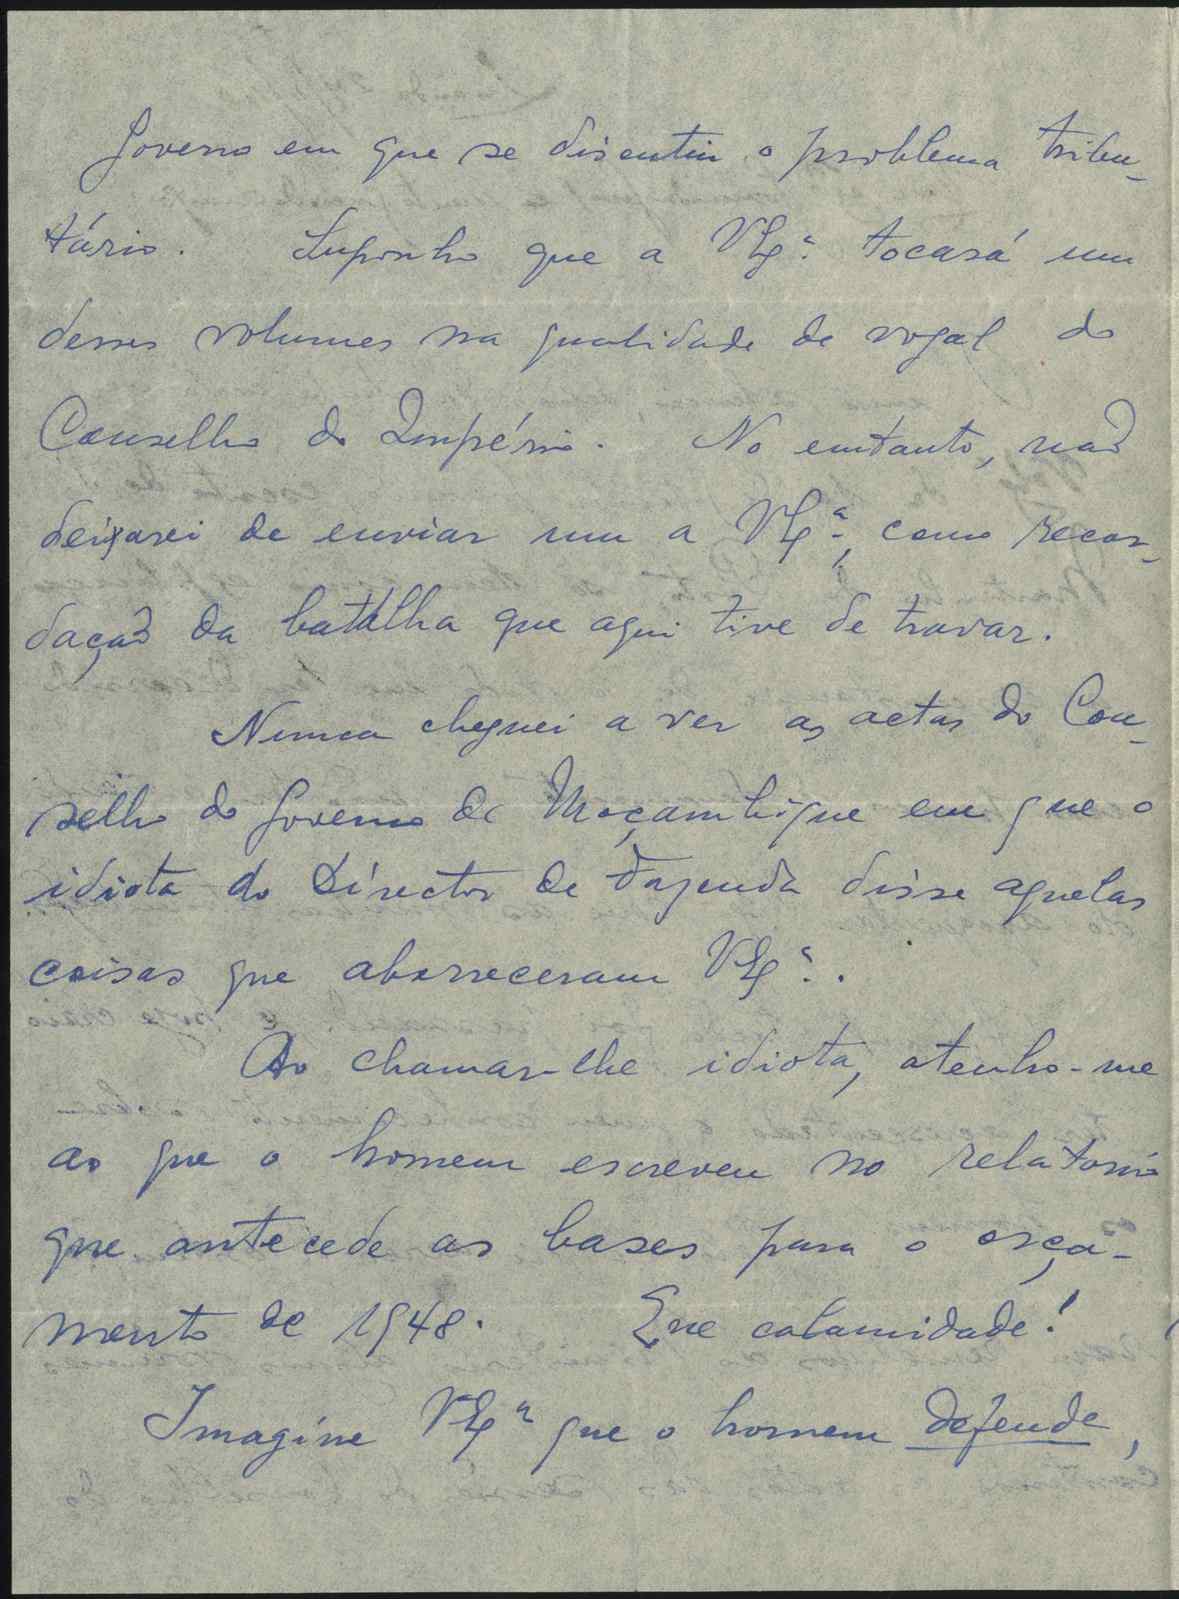 Governo em que se discutiu o problema tribu-
tário. Suponho que a VExª. tocará um
desses volumes na qualidade de vogal do
Conselho do Império. No entanto, não
deixarei de enviar um a VExª., como recor-
dação da batalha que aqui tive de travar.
Nunca cheguei a ver as actas do Con-
selho do Governo de Moçambique em que o
idiota do Director de Fazenda disse aquelas
coisas que aborreceram VExª..
Ao chamar-lhe idiota, atenho-me
ao que o homem escreveu no relatorio
que antecede as bases para o orça-
mento de 1948. Que calamidade!
Imagine VExª que o homem defende,